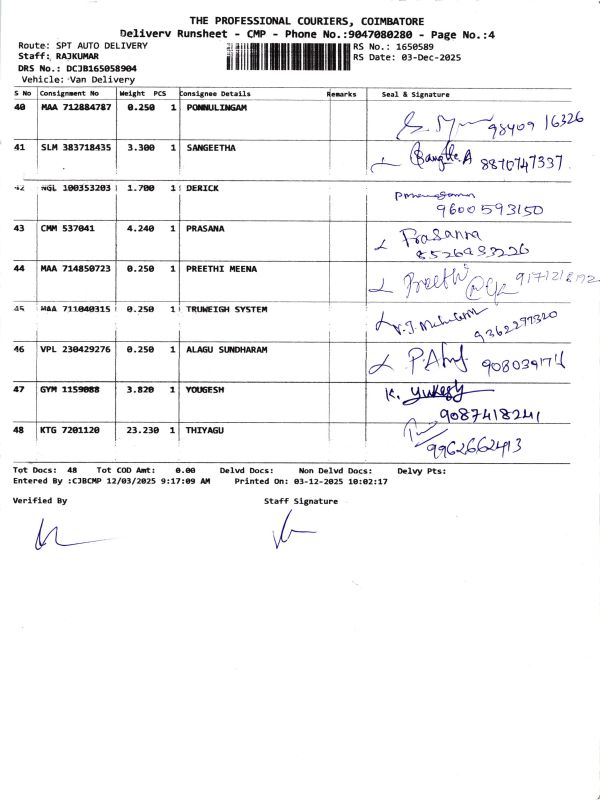 THE PROFESSIONAL COURIERS, COIMBATORE
Delivery Runsheet - CMP - Phone No.:9047080280 - Page No.:4
Route: SPT AUTO DELIVERY RS No.: 1650589
Staff: RAJKUMAR RS Date: 03-Dec-2025
DRS No.: DCJB165058904
Vehicle: Van Delivery
S No Consignment No Weight PCS Consignee Details Remarks Seal & Signature
40 MAA 712884787 0.250 1 PONNULINGAM
98409 16326
41 SLM 383718435 3.300 1 SANGEETHA
Sangeetha.A 8870747337
42 NGL 100353203 1.700 1 DERICK
9600593150
43 CMM 537041 4.240 1 PRASANA
Prasanna
8526933226
44 MAA 714850723 0.250 1 PREETHI MEENA
Preethi 9171218192
45 MAA 711040315 0.250 1 TRUWEIGH SYSTEM
9362297320
46 VPL 230429276 0.250 1 ALAGU SUNDHARAM
47 GYM 1159088 3.820 1 YOUGESH
K. Yukesh
9087418241
48 KTG 7201120 23.230 1 THIYAGU
9962662413
Tot Docs: 48 Tot COD Amt: 0.00 Delvd Docs: Non Delvd Docs: Delvy Pts:
Entered By :CJBCMP 12/03/2025 9:17:09 AM Printed On: 03-12-2025 10:02:17
Verified By Staff Signature